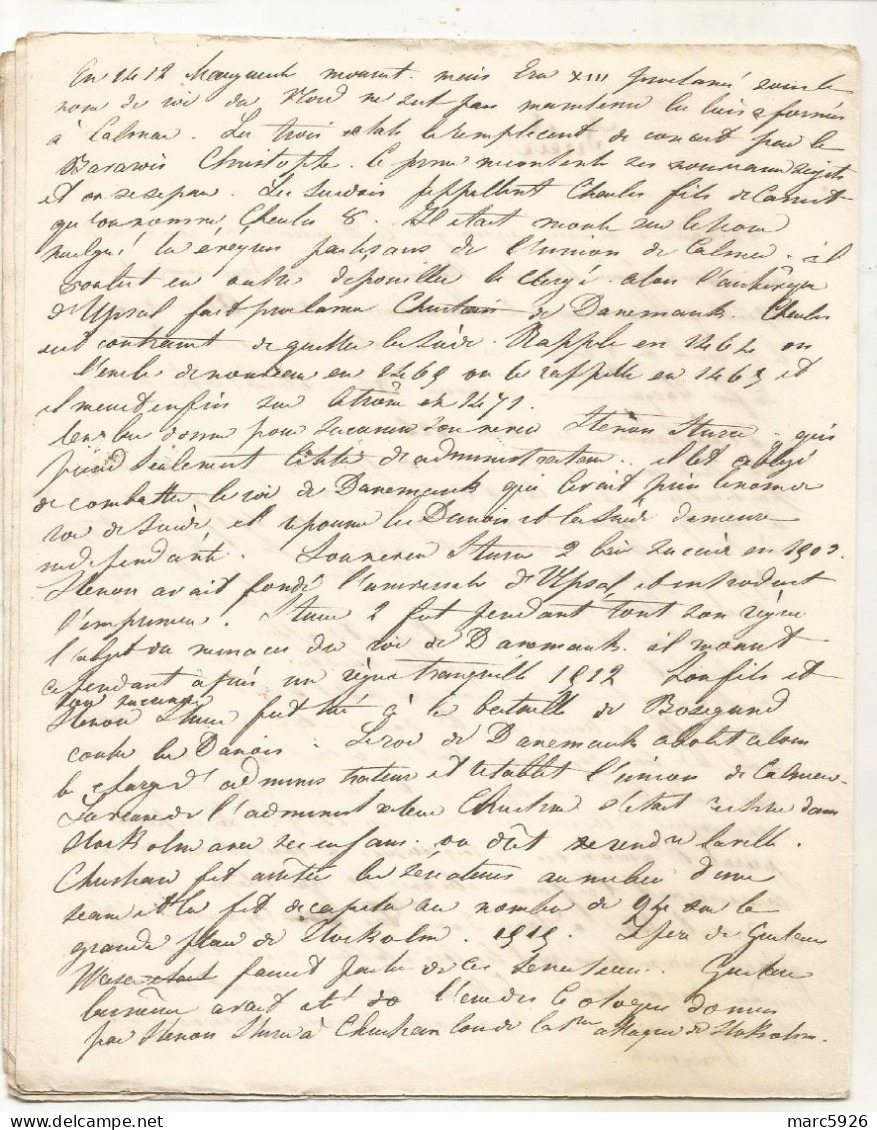 En 1412 Marguerite mourut. mais Eric XIII proclamé sous le
nom de roi du Nord ne sut pas maintenir les lois formées
à Calmar. Les trois états le remplacent de concert par le
Bavarois Christophe. ce prince mécontente ses nouveaux sujets
et on se sépare. Les Suédois appellent Charles fils de Canut
qu'on nomme Charles 8. Il était monté sur le trone
malgré les évêques partisans de l'union de Calmar. il
voulut en outre dépouiller le clergé. alors l'archevêque
d'Upsal fait proclamer Christian de Danemark. Charles
est contraint de quitter la Suède. Rappelé en 1464 on
l'exile de nouveau en 1465 on le rappelle en 1469 et
il meurt enfin sur le trône en 1471.
On lui donne pour successeur son neveu Sténon Sture. qui
prend seulement le titre de administrateur. il est obligé
de combattre le roi de Danemark qui avait pris le nom de
roi de Suède et repousse les Danois et la Suède demeure
indépendante. Son neveu Sture 2 lui succède en 1503.
Sténon avait fondé l'université d'Upsal et introduit
l'imprimerie. Sture 2 fut pendant tout son règne
l'objet des menaces du roi de Danemark. il mourut
cependant après un règne tranquille 1512 Son fils et
son successeur
Sténon Sture fut tué à la bataille de Bosegund
contre les Danois. Le roi de Danemark abolit alors
la charge d'administrateur et rétablit l'union de Calmar.
La veuve de l'administrateur Christine s'était retirée dans
Stockolm avec ses enfans. on dût rendre la ville.
Christian fit arrêter les sénateurs au milieu d'une
séance et les fit décapiter au nombre de 94 sur la
grande place de Stockolm. 1519. Le père de Gustave
Wasa était faisait partie de ces sénateurs. Gustave
lui même avait été l'un des 6 otages donnés
par Sténon Sture à Christian lors de la 1ère attaque de Stokolm.